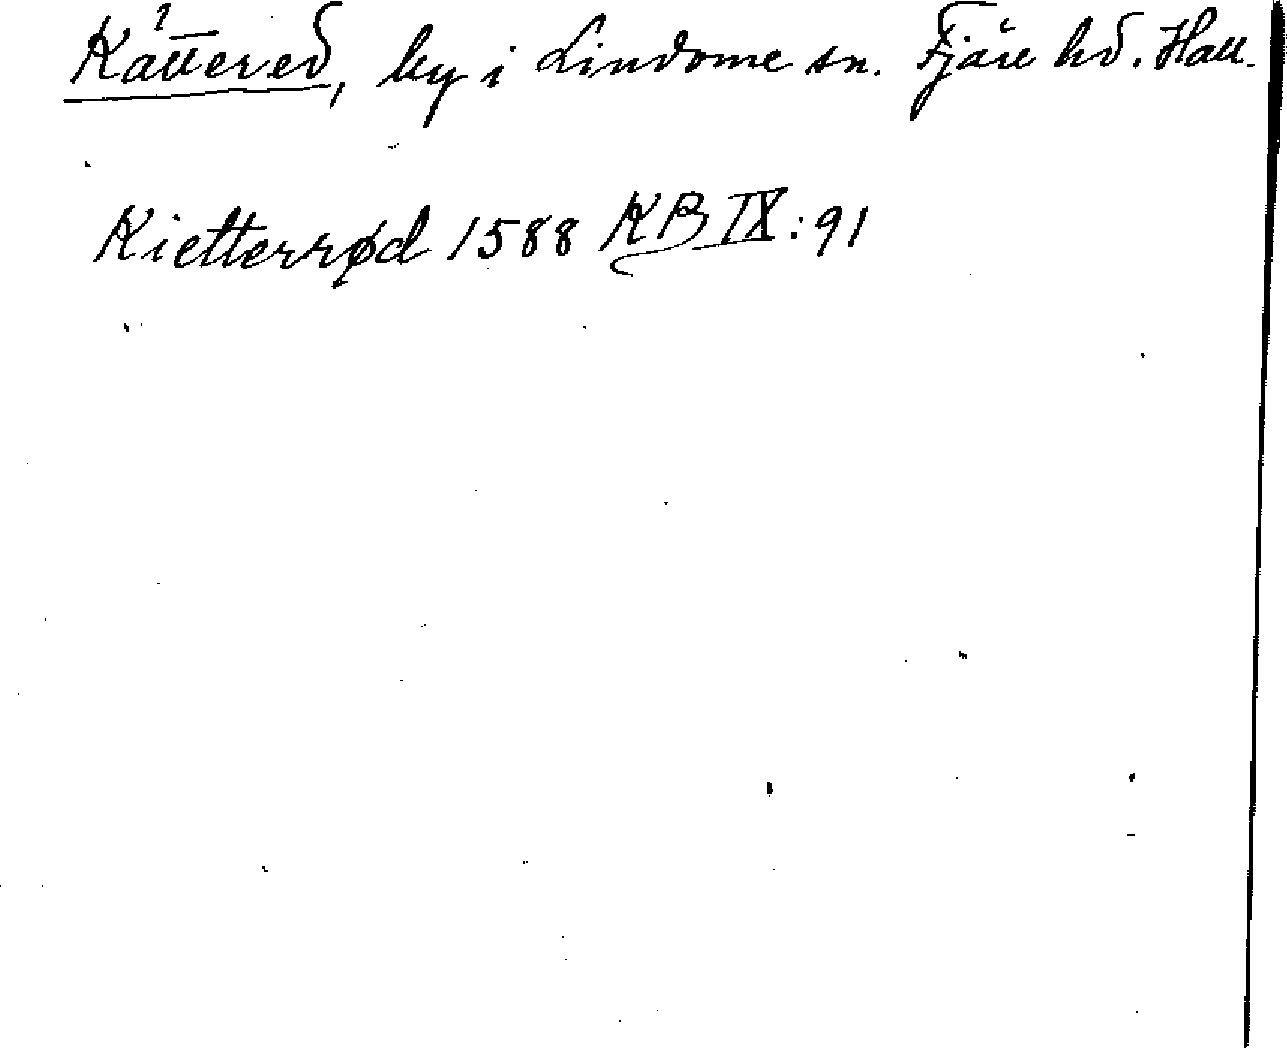 Kättered, by i Lindome sn. Fjäre hd. Hall.
Kietterrød 1588 KB IX: 91